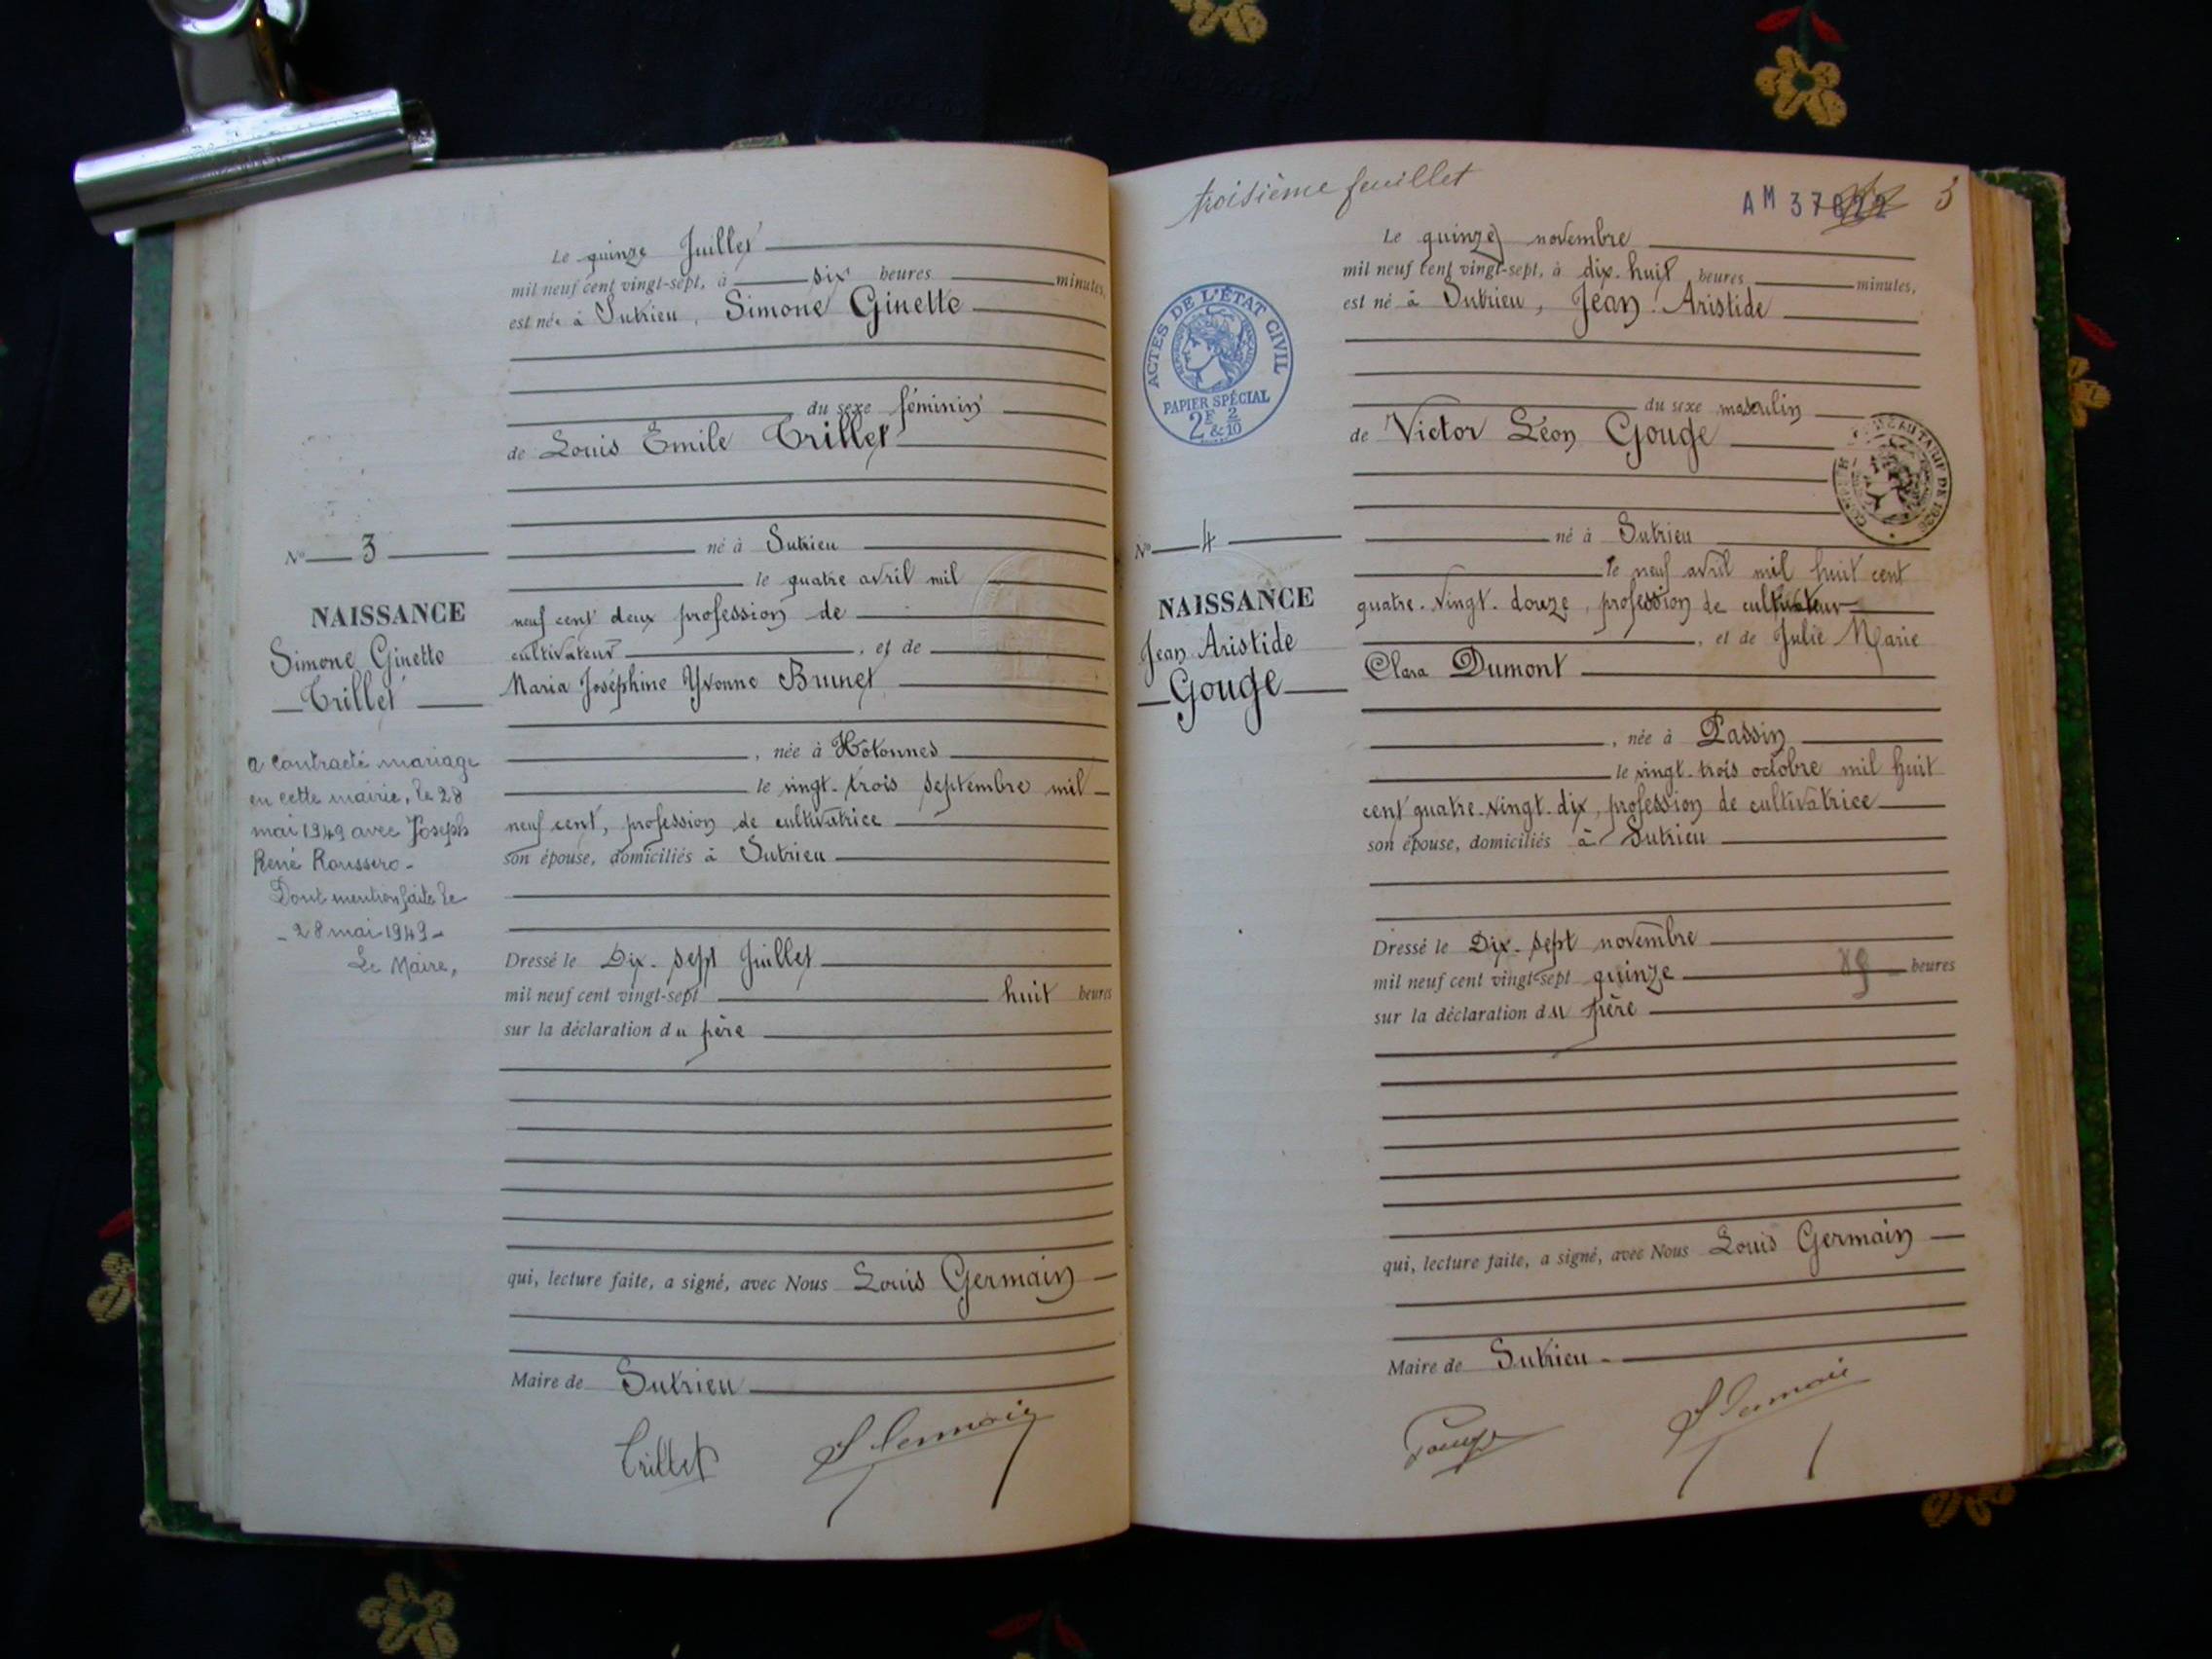 Le quinze Juillet
mil neuf cent vingt-sept, à six heures minutes,
est née à Sutrieu, Simone Ginette
du sexe féminin
de Louis Emile Trillet
né à Sutrieu
le quatre avril mil
neuf cent deux profession de
cultivateur, et de
Maria Joséphine Yvonne Brunet
, née à Hotonnes
le vingt-trois septembre mil
neuf cent, profession de cultivatrice
son épouse, domiciliés à Sutrieu
Dressé le Dix-sept Juillet
mil neuf cent vingt-sept huit heures
sur la déclaration du père
qui, lecture faite, a signé, avec Nous Louis Germain
Maire de Sutrieu
Trillet
N° 3
NAISSANCE
Simone Ginette
Trillet
a contracté mariage
en cette mairie, le 28
mai 1949 avec Joseph
René
Dont mention faite le
28 mai 1949
Le Maire,
troisième feuillet
AM 37 3
Le quinze novembre
mil neuf cent vingt-sept, à dix-huit heures minutes,
est né à Sutrieu, Jean Aristide
du sexe masculin
de Victor Léon Gouge
né à Sutrieu
le neuf avril mil huit cent
quatre-vingt-douze, profession de cultivateur
, et de Julie Marie
Clara Dumont
, née à Passin
le vingt-trois octobre mil huit
cent quatre-vingt-dix, profession de cultivatrice
son épouse, domiciliés à Sutrieu
Dressé le Dix-sept novembre
mil neuf cent vingt-sept quinze heures
sur la déclaration du père
qui, lecture faite, a signé, avec Nous Louis Germain
Maire de Sutrieu
Gouge
ACTES DE L'ÉTAT CIVIL
PAPIER SPÉCIAL
2F & 2/10
N° 4
NAISSANCE
Jean Aristide
Gouge